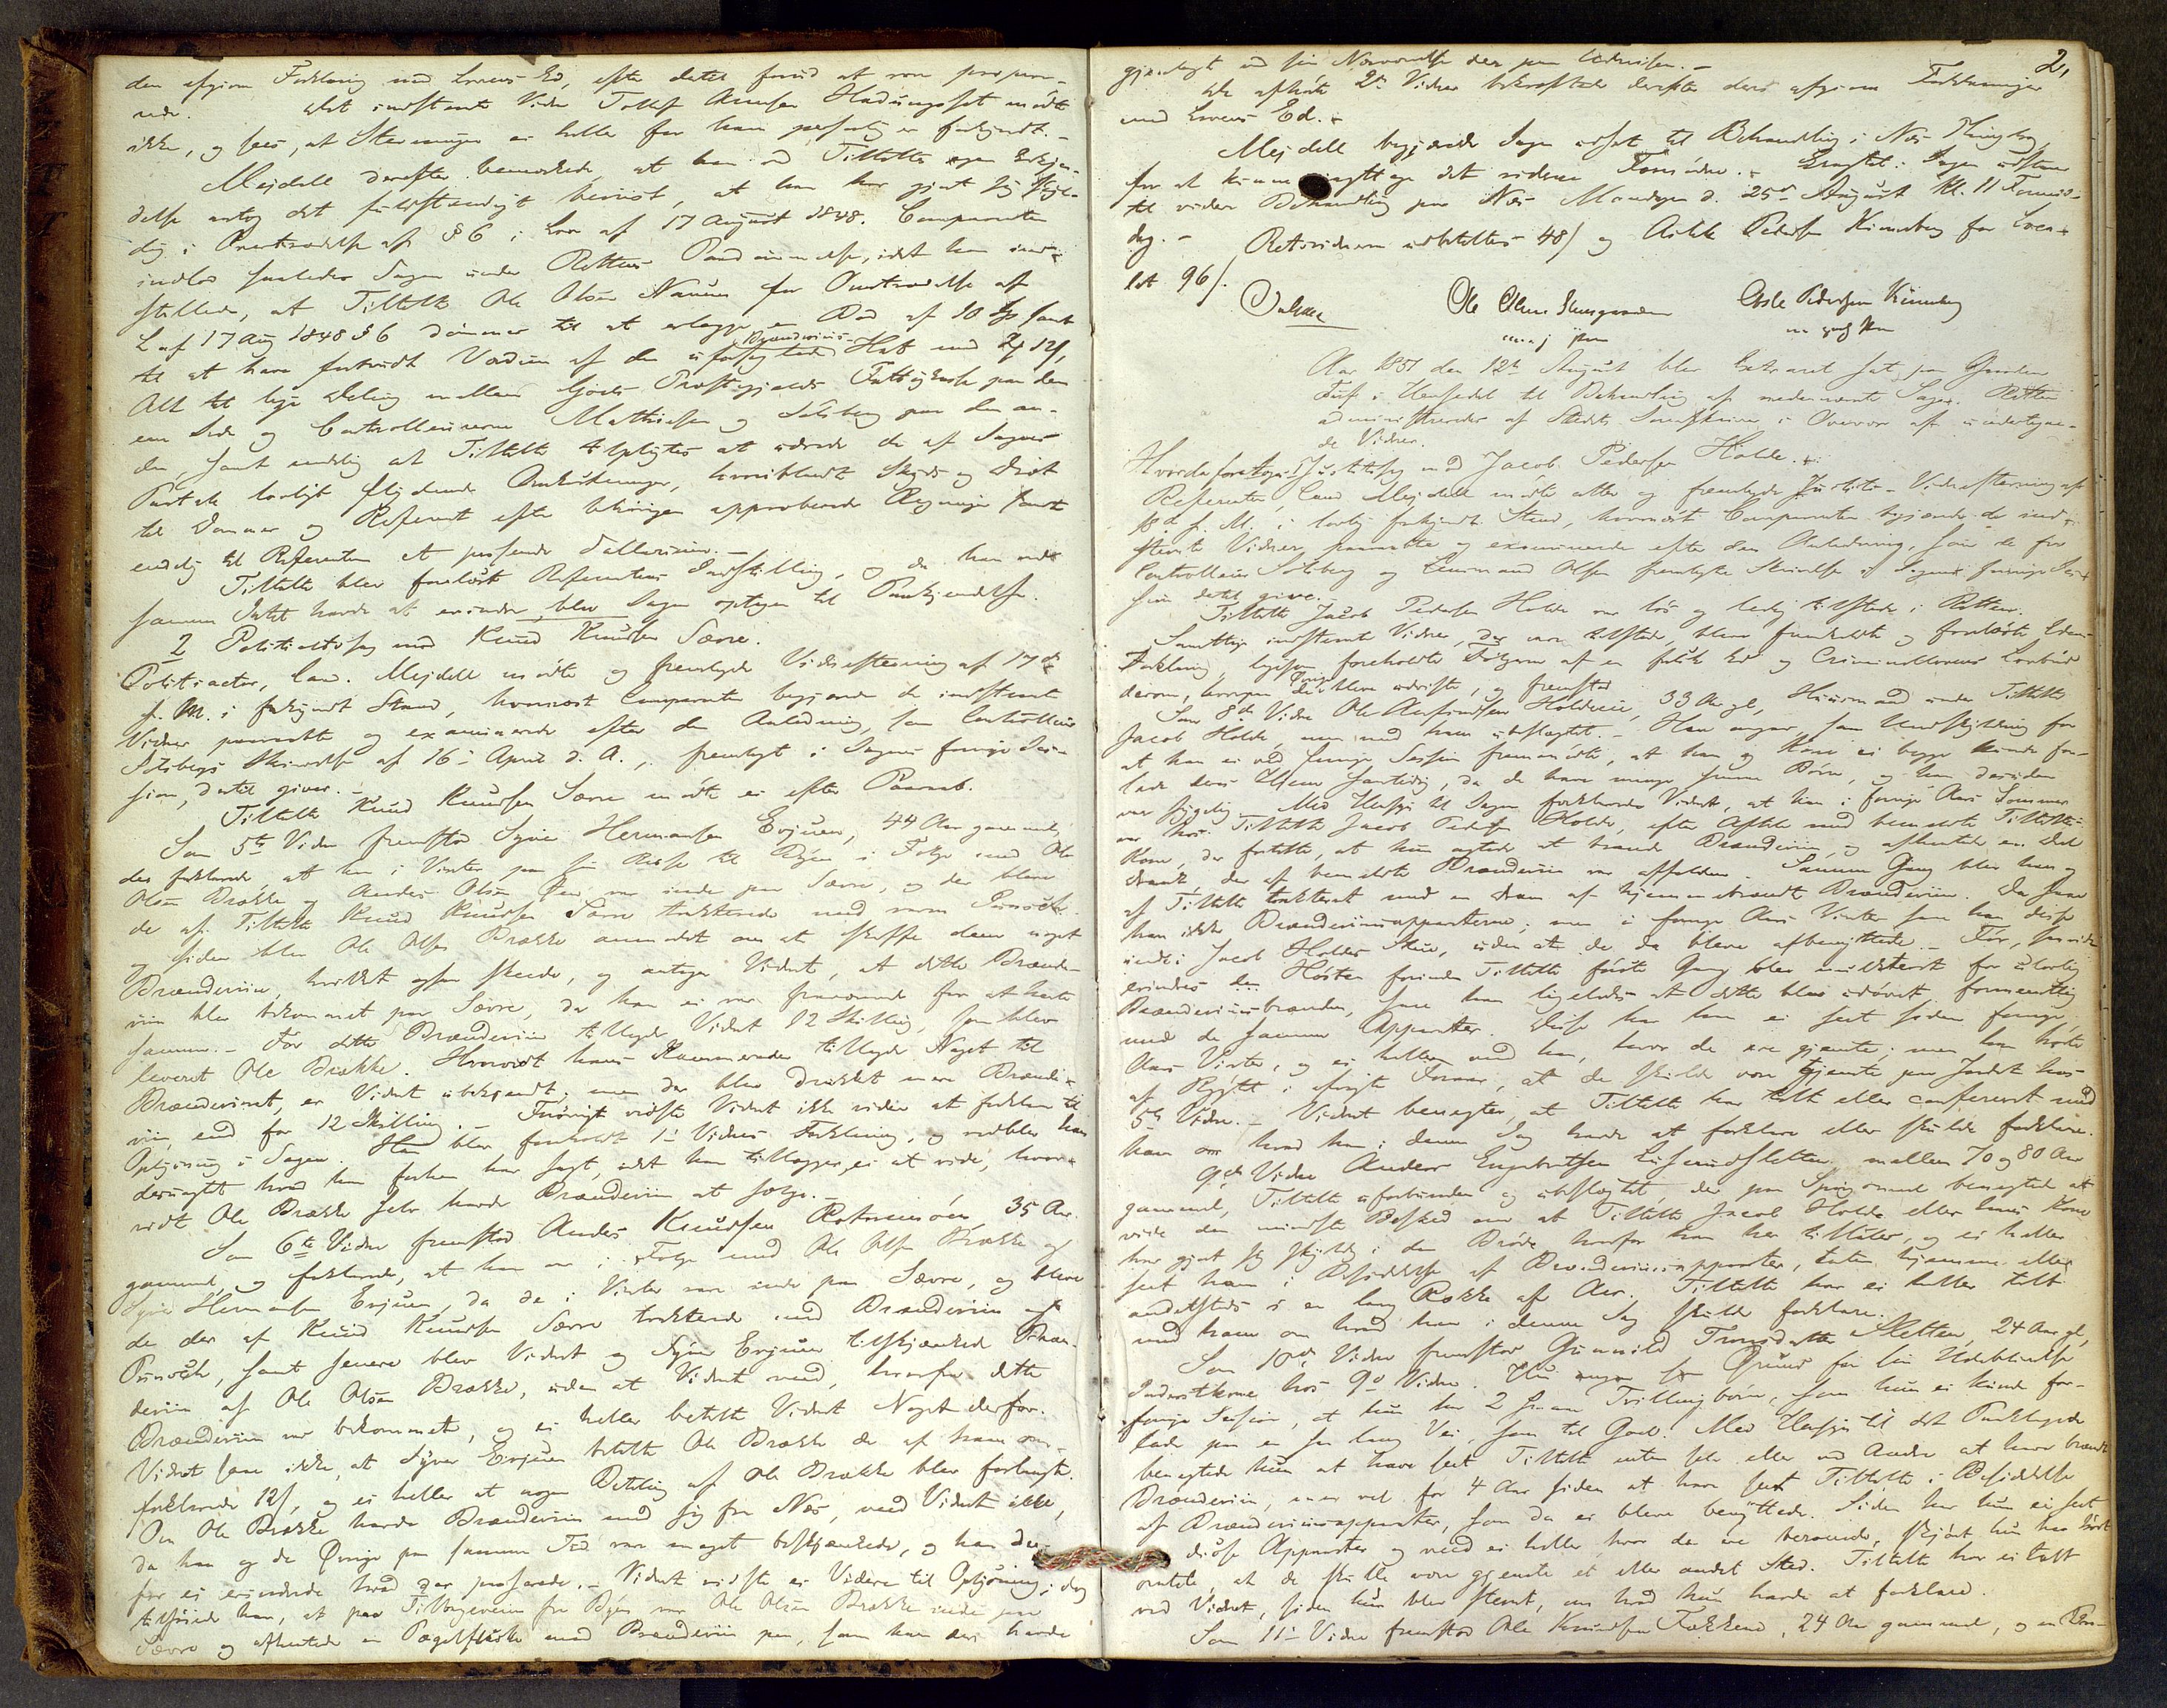 den afgivne Forklaring med Lovens Ed, efter dertil forud at være præpare-
rede. Det indstævnte Vidne Tollef Amundsen Hadungsset mødte
ikke, og sees, at Stevningen ei heller for ham personlig er forkyndt. –
Mejdell derefter bemærkede, at han ved Tiltaltes egen Erkjen-
delse antog det fuldstændigt beviist, at han har gjort sig skyl-
dig i Overtrædelse af § 6 i Lov af 17 August 1848. Comparenten
indlod saaledes Sagen under Rettens Paadømmelse, idet han ind-
stillede, at Tiltalte Ole Olsen Næven for Overtrædelse af
L. af 17 Aug 1848 § 6 dømmes til at erlægge en Bod af 10 Spd samt
til at have forbrudt Værdien af den ufortoldede Brændeviins- Hat med 24 12/,
Alt til lige Deling mellem Goels Præstegjelds Fattigkasse paa den
ene Side og Controlleurerne Mathiesen og Solberg paa den an-
den, samt endelig at Tiltalte tilpligtes at udrede de af Sagens
Paatale lovligt flydende Omkostninger, hvoriblandt Skyds og Diæt
til Dommer og Referent efter behørigen approberede Regninger samt
endelig til Referenten et passende Sallarium. –
Tiltalte blev forelæst Referentens Indstilling, og da han mod
samme Intet havde at erindre, blev Sagen optagen til Paakjendelse.
2 Politieretssag mod Knud Knudsen Sævre.
Politiactor, Cand. Mejdell mødte og fremlagde Vidnestevning af 17de
f. M. i forkyndt Stand, hvornæst Comparenten begjærede de indstævnte
Vidner paaraabte og examinerede efter den Anledning, som Controlleur
Solbergs Skrivelse af 16de April d. A., fremlagt i Sagens forrige Ses-
sion, dertil giver. –
Tiltalte Knud Knudsen Sævre mødte ei efter Paaraab.
Som 5te Vidne fremstod Syver Hermansen Evjuen, 44 Aar gammel,
der forklarede, at han i Vinter paa sin Reise til Byen i Følge med Ole
Olsen Brække og Anders Olsen var inde paa Sævre, og der bleve
de af Tiltalte Knud Knudsen Sævre trakterede med varm Punsch
og siden blev Ole Olsen Brække anmodet om at skaffe dem noget
Brændeviin, hvilket ogsaa skeede, og antager Vidnet, at dette Brænde-
viin blev bekommet paa Sævre, da han ei var fraværende for at hente
samme. – For dette Brændeviin tillagde Vidnet 12 Skilling, som blev
leveret Ole Brække. Hvorvidt hans Kammerader tillagde Noget til
Brændevinet, er Vidnet ubekjendt, men der blev drukket mere Brænde-
viin, end for 12 Skilling. – Forøvrigt vidste Vidnet ikke videre at forklare til
Oplysning i Sagen. Han blev foreholdt 1ste Vidnes Forklaring, og vedblev han
desuagtet hvad han forhen har sagt, idet han tillægger, ei at vide, hvor-
vidt Ole Brække selv havde Brændeviin at sælge. –
Som 6te Vidne fremstod Anders Knudsen Rotnemoen, 35 Aar
gammel, og forklarede, at han var i Følge med Ole Olsen Brække og
Syver Hermansen Evjuen, da de i Vinter vare inde paa Sævre, og bleve
de der af Knud Knudsen Sævre trakterede med Brændeviin og
Punsch, samt senere blev Vidnet og Syver Evjuen tilskjænkede Bræn-
deviin af Ole Olsen Brække, uden at Vidnet veed, hvorfra dette
Brændeviin var bekommet, og ei heller betalte Vidnet Noget derfor.
Vidnet saae ikke, at Syver Evjuen betalte Ole Brække de af ham om-
forklarede 12/, og ei heller at nogen Betaling af Ole Brække blev forlangt.
Om Ole Brække havde Brændeviin med sig fra Næs, veed Vidnet ikke,
da han og de Øvrige paa samme Tid var meget beskjænkede, og han der-
for ei erindrede hvad der passerede. – Vidnet vidste ei Videre til Oplysning; dog
tilføiede han, at paa Tilbageveien fra Byen var Ole Olsen Brække inde paa
Sævre og afhentede en Pægelflaske med Brændeviin paa, som han der havde
2,
gjenlagt ved sin Nærværelse der paa Udreisen. –
De afhørte 2de Vidner bekræftede derefter deres afgivne Forklaringer
med Lovens Ed. –
Mejdell begjærede Sagen udsat til Behandling i Næs Thinglag
for at kunne iagttage det videre Fornødne. – Eragtet: Sagen udstaaer
til videre Behandling paa Næs Mandagen d. 25de August Kl. 11 Formid-
dag. – Retsvidnerne udbetaltes 48/ og Aslak Pedersen Kinneberg for Loca-
let 96/.
Ole Olsen Asle Pedersen Kinneberg
Aar 1851 den 12te August blev Extraret sat paa Gaarden
Tuf i Henseende til Behandling af nedennævnte Sager. Retten
administreredes af Stedets Sorenskriver i Overvær af undertegne-
de Vidner.
Hvorda foretoges Justitssag mod Jacob Pedersen Holde. –
Referenten, Cand. Mejdell mødte atter og fremlagde Justits-Vidnestevning af
18de f. M. i lovlig forkyndt Stand, hvornæst Comparenten begjærede de ind-
stævnte Vidner paaraabte og examinerede efter den Anledning, som de fra
Controlleur Solberg og Lensmand Olsen fremlagte Skrivelser i Sagens forrige Ses-
sion dertil give.
Tiltalte Jacob Pedersen Holde var løs og ledig tilstede i Retten.
Samtlige indstævnte Vidner, der vare tilstede, bleve fremkaldte og forelæste Edens
Forklaring, ligesom foreholdte Følgerne af en falsk Ed og Criminallovens Lovbud
derom, hvorpaa de Øvrige bleve udviste, og fremstod
Som 8de Vidne Ole Holdeeie, 33 Aar gl, Huusmand under Tiltalte
Jacob Holde, men med ham ubeslægtet. – Han angav, som Undskyldning for
at han ei ved forrige Session fremmødte, at han og Kone ei begge kunde for-
lade deres Hjem samtidig, da de have mange smaae Børn, og hun desuden
var sygelig. – Med Hensyn til Sagen forklarede Vidnet, at han i forrige Aars Sommer
var hos Tiltalte Jacob Pedersen Holde, efter Aftale med bemeldte Tiltaltes
Kone, der fortalte, at hun agtede at brænde Brændeviin, og afhentede en Deel
Drank der af bemeldte Brændeviin var affalden. – Samme Gang blev han og
af Tiltalte trakteret med en Dram af hjemmebrændt Brændeviin. Da saae
han ikke Brændeviinsapparaterne; men i forrige Aars Vinter saae han disse
inde i Jacob Holdes Stue, uden at de da bleve afbenyttede. – Før, saavidt
erindres den Høsten forinden Tiltalte første Gang blev mulkteret for ulovlig
Brændeviinsbrænden, saae han ligeledes at dette blev udøvet formeentlig
med de samme Apparater. Disse har han ei seet siden forrige
Aars Vinter, og ei heller veed han, hvor de ere gjemte; men han hørte
af Rygte i afvigte Foraar, at de skulde være gjemte paa Jordet hos
5te Vidne. – Vidnet benegter, at Tiltalte har talt eller confereret med
ham om hvad han i denne Sag havde at forklare eller skulde forklare.
9de Vidne Anders Engebretsen mellem 70 og 80 Aar
gammel, Tiltalte uforbunden og ubeslægtet, der paa Spørgsmaal benegtede at
vide den mindste Besked om at Tiltalte Jacob Holde eller hans Kone
har gjort sig skyldig i den Brøde hvorfor han her tiltales, og ei heller
seet ham i Besiddelse af Brændeviinsapparater, enten hjemme eller
andetsteds i en lang Række af Aar. Tiltalte har ei heller talt
med ham om hvad han i denne Sag skulde forklare.
Som 10de Vidne fremstod Gunnild Trondsdatter Sletten, 24 Aar gl,
Inderstkone hos 9de Vidne. Hun angav som Grund for sin Udeblivelse
forrige Session, at hun har 2 smaa Tvillingbørn, som hun ei kunde for-
lade paa en saa lang Vei, som til Goel. Med Hensyn til det Paaklagede
benegtede hun at have seet Tiltalte enten selv eller ved Andre at have brændt
Brændeviin, men vel for 4 Aar siden at have seet Tiltalte i Besiddelse
af Brændeviinsapparater, som da ei bleve benyttede. Siden har hun ei seet
disse Apparater og veed ei heller hvor de ere værende, skjønt hun har hørt
omtale, at de skulle være gjemte et eller andet Sted. Tiltalte har ei talt
ved Vidnet, siden hun blev stevnt, om hvad hun havde at forklare.
Som 11te Vidne fremstod Ole Knudsen Fekkene, 24 Aar gammel, og en